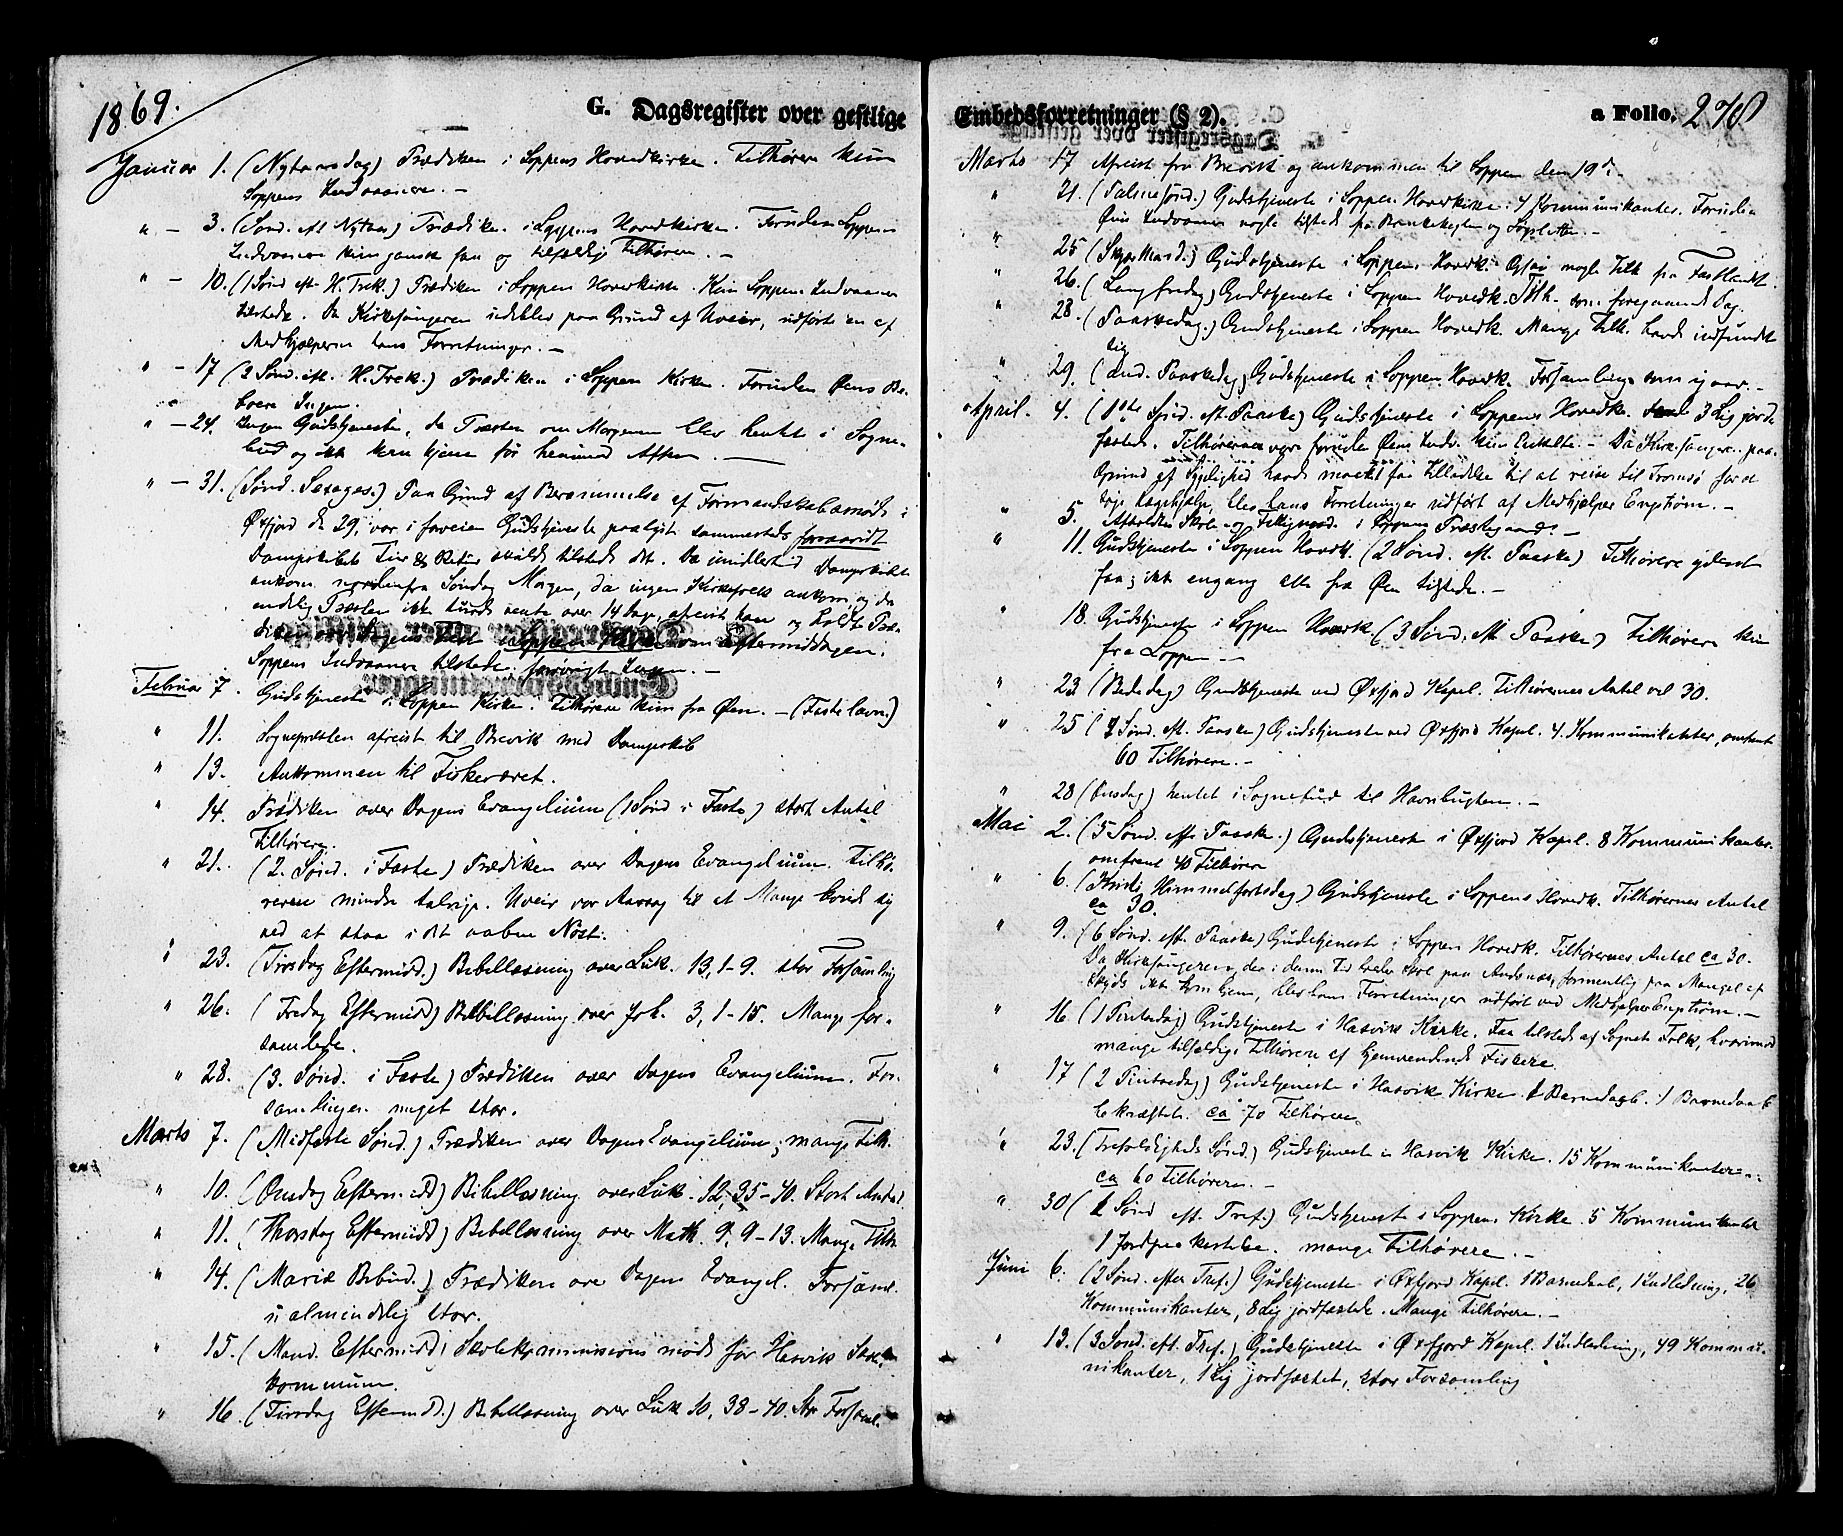 1869.
G. Dagsregister over gestlige
Januar 1. (Nytaarsdag) Prædiken i Loppens Hovedkirke. Tilhørere kun
Loppens Indvaanere. –
" – 3. (Sønd. eft. Nytaar) Prædiken i Loppens Hovedkirke. Foruden Loppens
Indvaanere kun ganske faa og tilfældige Tilhørere. –
" – 10. (1 Sønd eft. H. Trek.) Prædiken i Loppens Hovedkirke. Kun Loppens Indvaanere
tilstede. Da Kirkesangeren udeblev paa Grund af Uveir, udførte en af
Medhjælperne hans Forretninger. –
" – 17 (2 Sønd. eft. H. Trek.) Prædiken i Loppens Kirke. Foruden Øens Be-
boere Ingen.
" – 24. Ingen Gudstjeneste, da Præsten om Morgenen blev hentet i Sogne-
bud og ikke kom hjem før henimod Aften. –
" – 31. (Sønd. Sexages.) Paa Grund af Berammelse af Formandskabsmøde i
Øxfjord den 29, var i forveien Gudstjeneste paalyst sammesteds
Dampskibets Tur & Retur skulde tilstede det. Da imidlertid Dampskibet
ankom nordenfra Søndag Morgen, da ingen Kirkefolk ankom, og da
endelig Præsten ikke turde vente over 14 Dage, afreiste han og holdt Præ-
diken over Dagens Text i Loppens Kirke om Eftermiddagen.
Loppens Indvaanere tilstede, forøvrigt Ingen. –
Februar 7. Gudstjeneste i Loppen Kirke. Tilhørere kun fra Øen. – (Fastelavn)
" 11. Sognepræsten afreist til Brevik med Dampskib
" 13. Ankommen til Fiskeværet.
" 14. Prædiken over Dagens Evangelium (1 Sønd i Faste) stort Antal
Tilhørere.
" 21. (2. Sønd. i Faste) Prædiken over Dagens Evangelium. Tilhø-
rerne mindre talrige. Uveir var Aarsag til at Mange kviede sig
ved at staa i det aabne Nøst.
" 23. (Tirsdag Eftermidd.) Bibellæsning over Luk. 13, 1-9. stor Forsamling
" 26. (Fredag Eftermidd) Bibellæsning over Joh. 3, 1-15. Mange for-
samlede.
" 28. (3. Sønd. i Faste) Prædiken over Dagens Evangelium. For-
samlingen meget stor.
Marts 7. (Midfaste Sønd.) Prædiken over Dagens Evangelium; mange Tilh.
" 10. (Onsdag Efterm.idd) Bibellæsning over Luk. 12, 35-40. Stort Antal
" 11. (Thorsdag Eftermidd) Bibellæsning over Math. 9, 9-13. Mange Tilh.
" 14. (Mariæ Bebud.) Prædiken over Dagens Evangel. Forsaml.
ualmindelig stor.
" 15. (Mand. Eftermidd) Skolekommissions møde for Hasvik Skole-
kommune.
" 16. (Tirsdag Eftermidd.) Bibellæsning over Luk 10, 38-40. Stor Forsaml.
Embedsforretninger (§ 2).
a Folio. 278
Marts 17 Afreist fra Brevik og ankommen til Loppen den 19d.
" 21. (Palmesønd.) Gudstjeneste i Loppens Hovedkirke. 4 Kommunikantes. Foruden
Øens Indvaanere nogle tilstede fra Brækkekoglen og Sopsletten. –
" 25 (Skjærthorsd.) Gudstjeneste i Loppens Hovedk. Ogsaa nogle Tilh. fra Fastlandet.
" 26. (Langfredag) Gudstjeneste i Loppen Hovedk. Tilh. som foregaaende Dag.
" 28. (Paaskedag.) Gudstjeneste i Loppen Hovedk. Mange Tilh. havde indfundet
sig
" 29. (And. Paaskedag) Gudstjeneste i Loppen Hovedk. Forsamlingen som igaar. –
April. 4. (1ste Sønd. eft. Paaske) Gudstjeneste i Loppens Hovedk. 3 Lig jord-
fæstede. Tilhørerne vare foruden Øens Indv. kun Enkelte. – Da Kirkesangeren paa
Grund af Sygelighed havde maattet faa Tilladelse til at reise til Tromsø for at
søge Lægehjælp, blev hans Forretninger udført af Medhjælper Engstrøm. –
" 5. Afholdtes Skole- og Fattigmøde i Loppens Præstegaard. –
" 11. Gudstjeneste i Loppen Hovedk. (2 Sønd. eft. Paaske) Tilhørere yderst
faa; ikke engang alle fra Øen tilstede. –
" 18. Gudstjeneste i Loppen Hovedk (3 Sønd. eft. Paaske) Tilhørere kun
fra Loppen –
" 23 (Bededag) Gudstjeneste ved Øxfjord Kapel. Tilhørernes Antal vel 30.
" 25 (4 Sønd. eft. Paaske) Gudstjeneste ved Øxfjord Kapel. 4. Kommunikanter, omtrent
60 Tilhørere. –
" 28 (Onsdag) hentet i Sognebud til Havnbugten. –
Mai 2. (5 Sønd. eft. Paaske.) Gudstjeneste i Øxfjord Kapel. 8 Kommunikanter.
omtrent 40 Tilhørere
" 6. (Kristi Himmelfartsdag) Gudstjeneste i Loppens Hovedk. Tilhørernes Antal
ca 30.
" 9. (6 Sønd. eft. Paaske) Gudstjeneste i Loppen Hovedk. Tilhørernes Antal ca 30.
Da Kirkesangeren, der i denne Tid holder Skole paa Andsnæs, formentlig paa Mangel af
Skyds ikke kom hjem, blev hans Forretninger udført ved Medhjælper Engstrøm. –
" 16 (1 Pintsedag) Gudstjeneste i Hasvik Kirke. Faa tilstede af Sognets Folk, hvorimod
mange tilfældige Tilhørere af hjemvendende Fiskere.
" 17 (2 Pintsedag) Gudstjeneste i Hasvik Kirke. 1 Barnedaab. 1 Barnedaab
bekræftet. ca 70 Tilhørere.
" 23. (Trefoldigheds Sønd) Gudstjeneste i Hasvik Kirke. 15 Kommunikanter.
ca 60 Tilhørere. –
" 30 (1 Sønd eft. Tref.) Gudstjeneste i Loppens Kirke. 5 Kommunikanter
1 Jordpaakastelse. mange Tilhørere. –
Juni 6. (2 Sønd. efter Tref.) Gudstjeneste i Øxfjord Kapel. 1 Barnedaab, 1 Indledning, 26
Kommunikanter, 8 Lig jordfæstede. Mange Tilhørere. –
" 13. (3 Sønd. eft. Tref.) Gudstjeneste i Øxfjord Kapel. 1 Indledning, 49 Kommu-
nikanter, 1 Lig jordfæstet, stor Forsamling